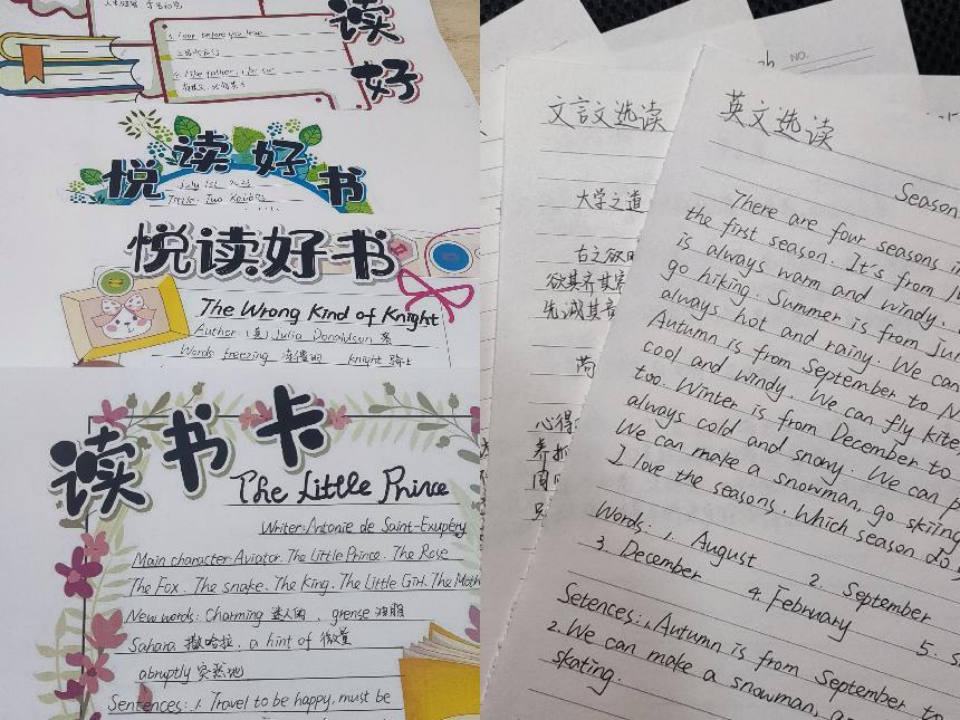 读
好
3. Look before you leap.
三思而后行
悦读好书
July 1st
Title: Two Rabbits
悦读好书
The Wrong Kind of Knight
Author: (英) Julia Donaldson 著
Words freezing Knight 骑士
读书卡
The Little Prince
Writer: Antonie de Saint-Exupéry
Main character: Aviator. The Little Prince. The Rose
The Fox. The snake. The King. The Little Girl. The Moth
New words: Charming 迷人的, grense 润服
Sahara 撒哈拉, a hint of 微量
abruptly 突然地
Sentences: 1. Travel to be happy, must be
NO.
文言文选读
大学之道
古之欲明
欲其齐其家
先诚其意
心得
英文选读
Season
There are four seasons in
the first season. It's from Ja
is always warm and windy.
go hiking. Summer is from Jun
always hot and rainy. We can
Autumn is from September to N
cool and windy. We can fly kite
too. Winter is from December to
always cold and snowy. We can p
We can make a snowman, go skiing
I love the seasons. Which season do y
Words: 1. August 2. September
3. December 4. February 5. s
Setences: 1. Autumn is from September to
2. We can make a snowman, a
skating.